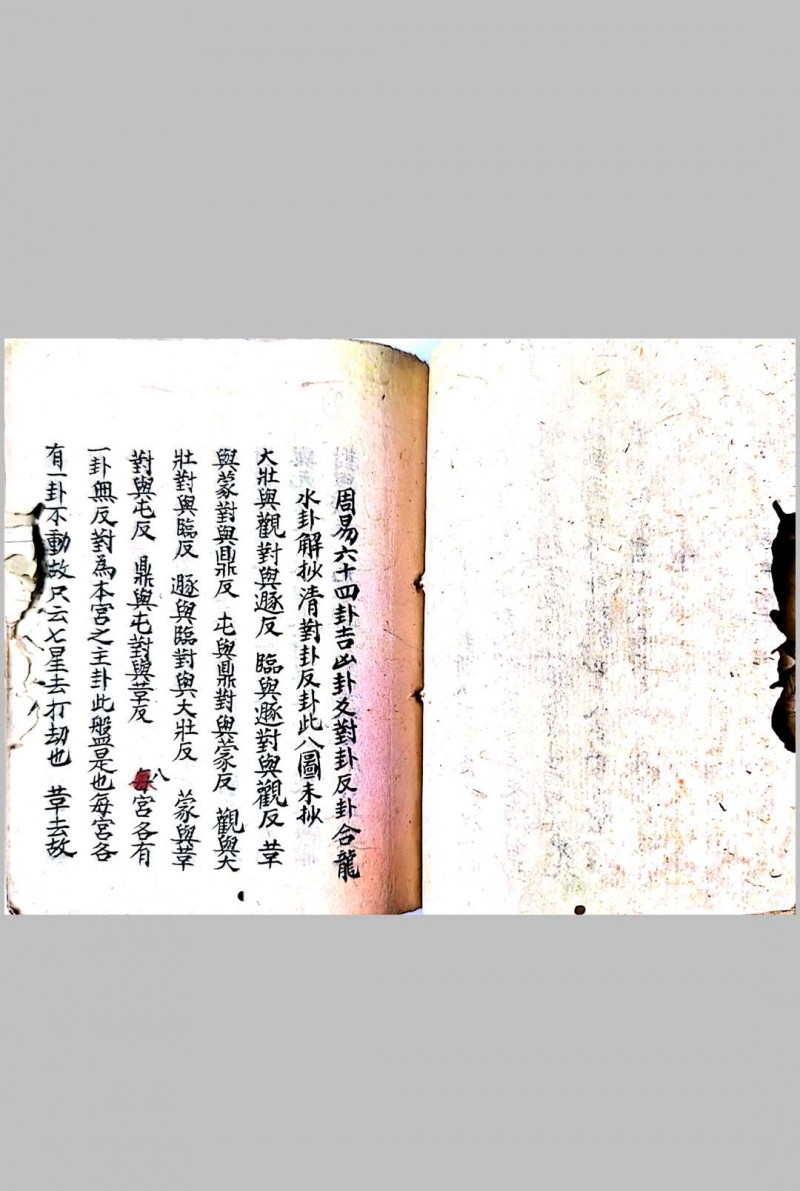 周易六十四卦吉凶卦爻對卦反卦合龍
水卦解抄清對卦反卦此八圖未抄
大壯與觀對與遯反 臨與遯對與觀反 革
與蒙對與鼎反 屯與鼎對與蒙反 觀與大
壯對與臨反 遯與臨對與大壯反 蒙與革
對與屯反 鼎與屯對與革反 每八宮各有
一卦無反對為本宮之主卦此盤是也每宮各
有一卦不動故只云七星去打劫也 革去故